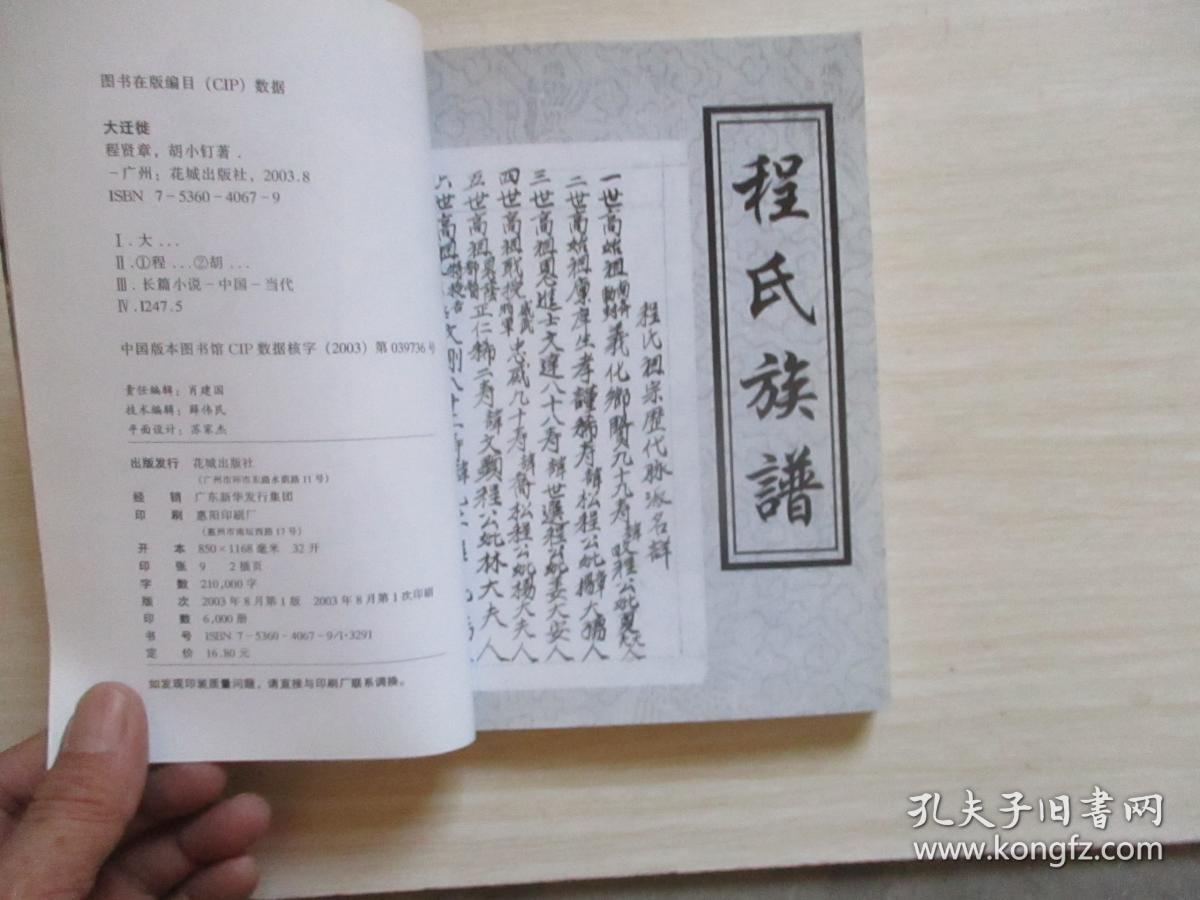 图书在版编目（CIP）数据
大迁徙
程贤章，胡小钉著．
－广州：花城出版社，2003.8
ISBN 7－5360－4067－9
Ⅰ．大…
Ⅱ．①程…②胡…
Ⅲ．长篇小说－中国－当代
Ⅳ．I247.5
中国版本图书馆 CIP 数据核字（2003）第 039736 号
责任编辑：肖建国
技术编辑：薛伟民
平面设计：苏家杰
出版发行 花城出版社
（广州市环市东路水荫路11号）
经 销 广东新华发行集团
印 刷 惠阳印刷厂
（惠州市南坛西路17号）
开 本 850×1168毫米 32开
印 张 9 2插页
字 数 210,000字
版 次 2003年8月第1版 2003年8月第1次印刷
印 数 6,000册
书 号 ISBN 7－5360－4067－9/I·3291
定 价 16.80元
如发现印装质量问题，请直接与印刷厂联系调换。
程氏族譜
程氏祖宗歷代脉派名諱
一世高始祖 義化鄉賢九十九寿 程公妣夏 人
二世高始祖 庠生孝謹 寿諱松程公妣 大 人
三世高祖恩進士文達八十八寿諱世進程公妣姜大安人
四世高祖 威武将軍忠威九十寿諱喬松程公妣楊大夫人
五世高祖 正仁 二寿諱文顯程公妣林大夫人
六世高祖
孔夫子旧书网
www.kongfz.com